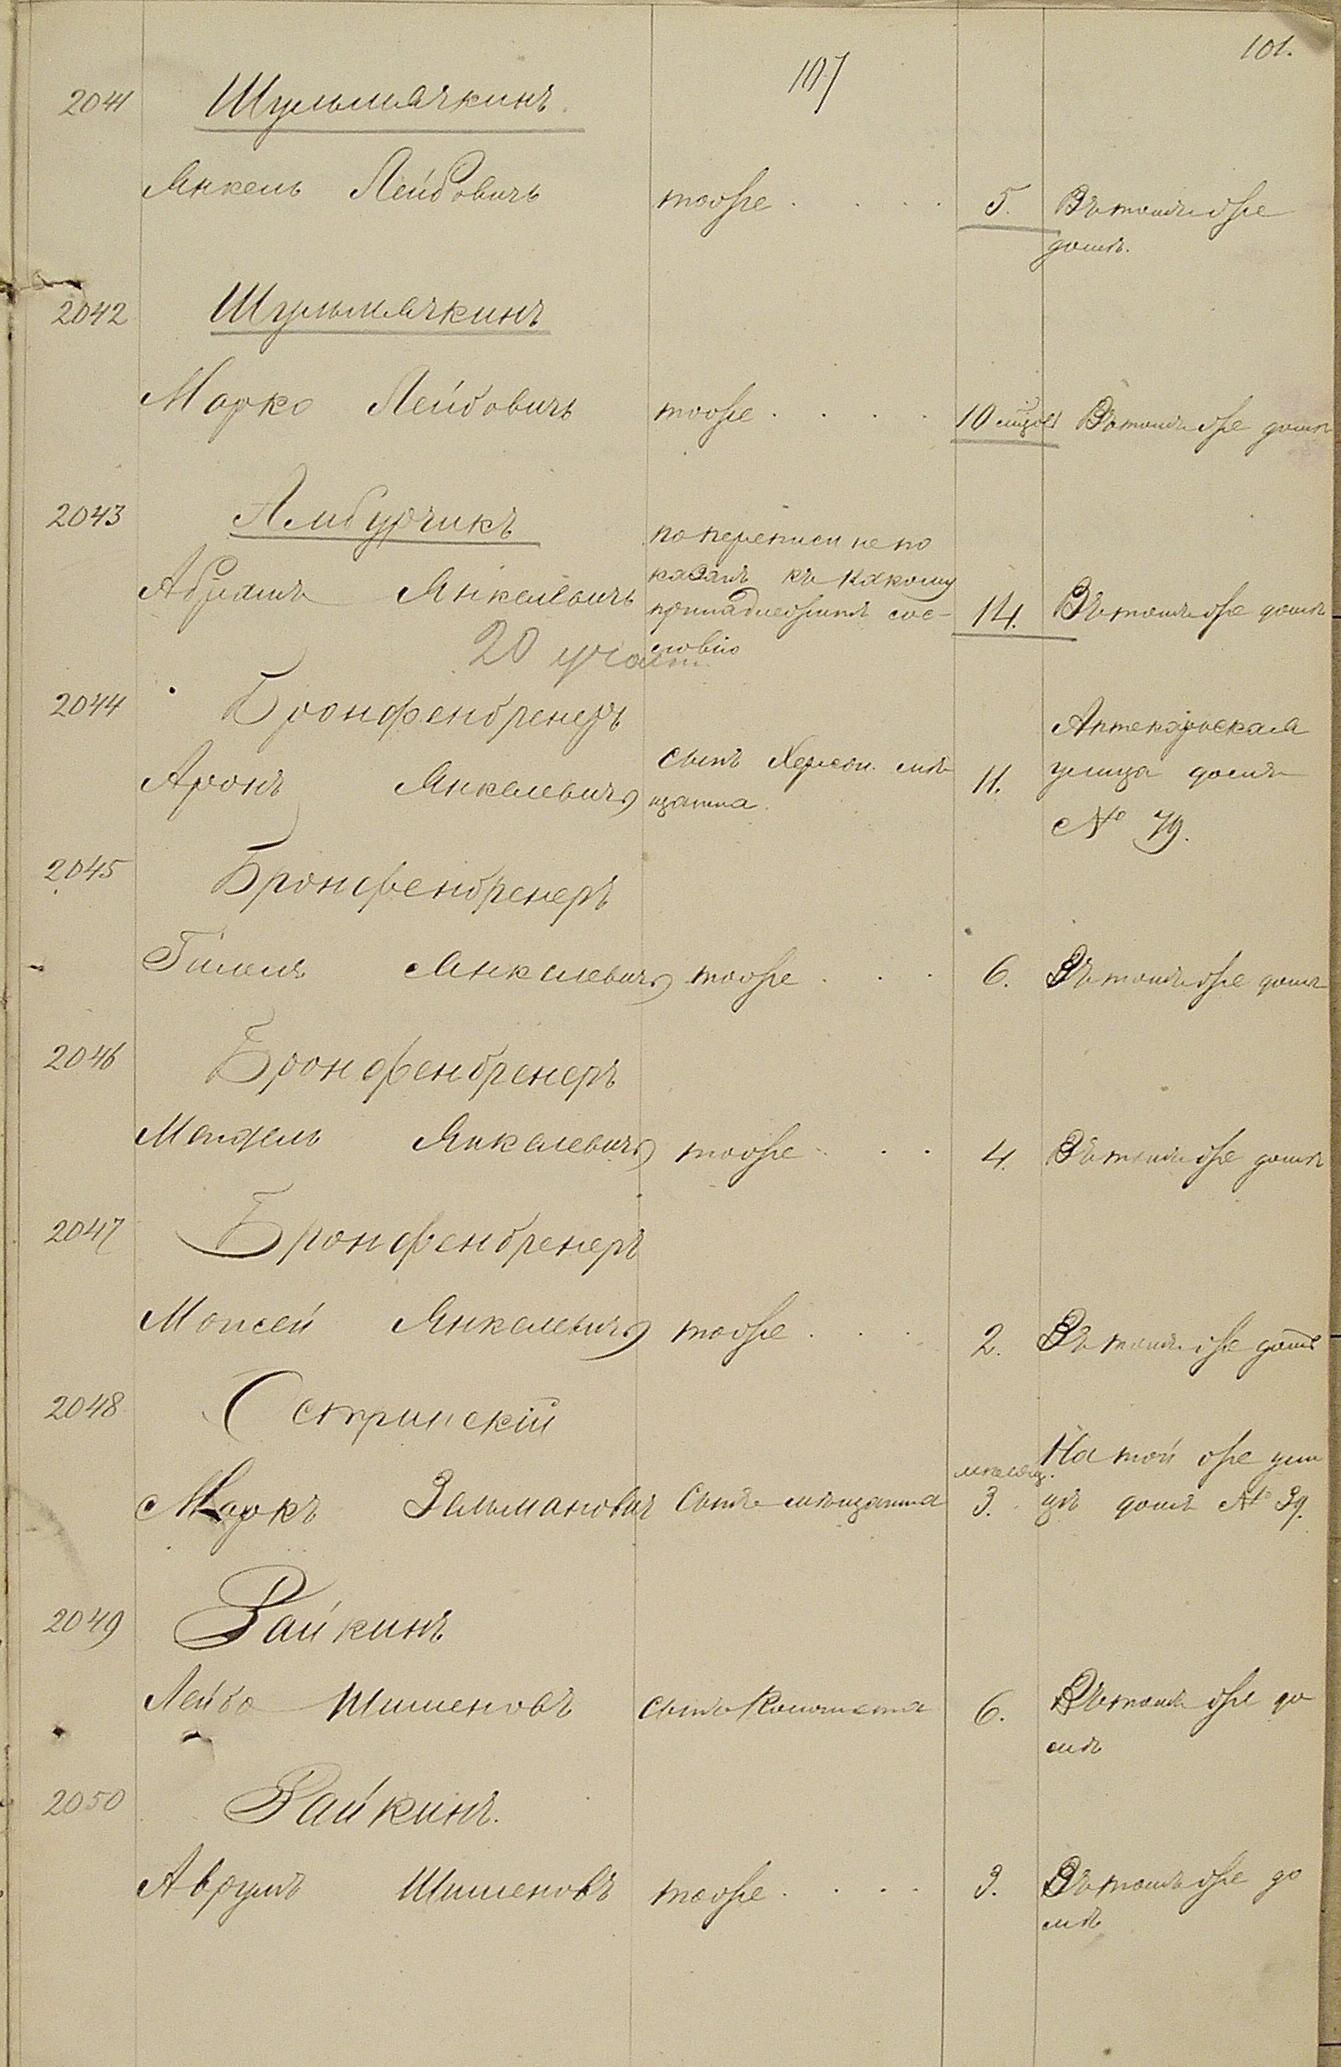 101.
107
2041 Шульмячкинъ.
Янкель Лейбовичъ тоже . . . . 5. Въ томъ же
домѣ.
2042 Шульмячкинъ
Марко Лейбовичъ тоже . . . . 10 мѣсяц. Въ томъ же домѣ
2043 Амбурчикъ
по переписи не по
Абрамъ Янкелевичъ казанъ къ какому
принадлежитъ сос-
ловію
14. Въ томъ же домѣ
20 участ.
2044 Бронфенбренеръ
Аронъ Янкелевичъ сынъ Херсон. мѣ
щанина. 11.
Аптекарьская
улица домъ
№ 79.
2045 Бронфенбренеръ
Гилель Янкелевичъ тоже . . . 6. Въ томъ же домѣ
2046 Бронфенбренеръ
Мендель Янкелевичъ тоже . . . 4. Въ томъ же домѣ
2047 Бронфенбренеръ
Моисей Янкелевичъ тоже . . . 2. Въ томъ же домѣ
2048 Остринскій
Маркъ Зельмановичъ Сынъ мѣщанина мѣсяц. 3.
На той же ули
цѣ домъ № 39.
2049 Зайкинъ
Лейба Шименовъ Сынъ Колониста 6. Въ томъ же до
мѣ
2050 Зайкинъ.
Аврумъ Шименовъ тоже . . . . 3. Въ томъ же до
мѣ